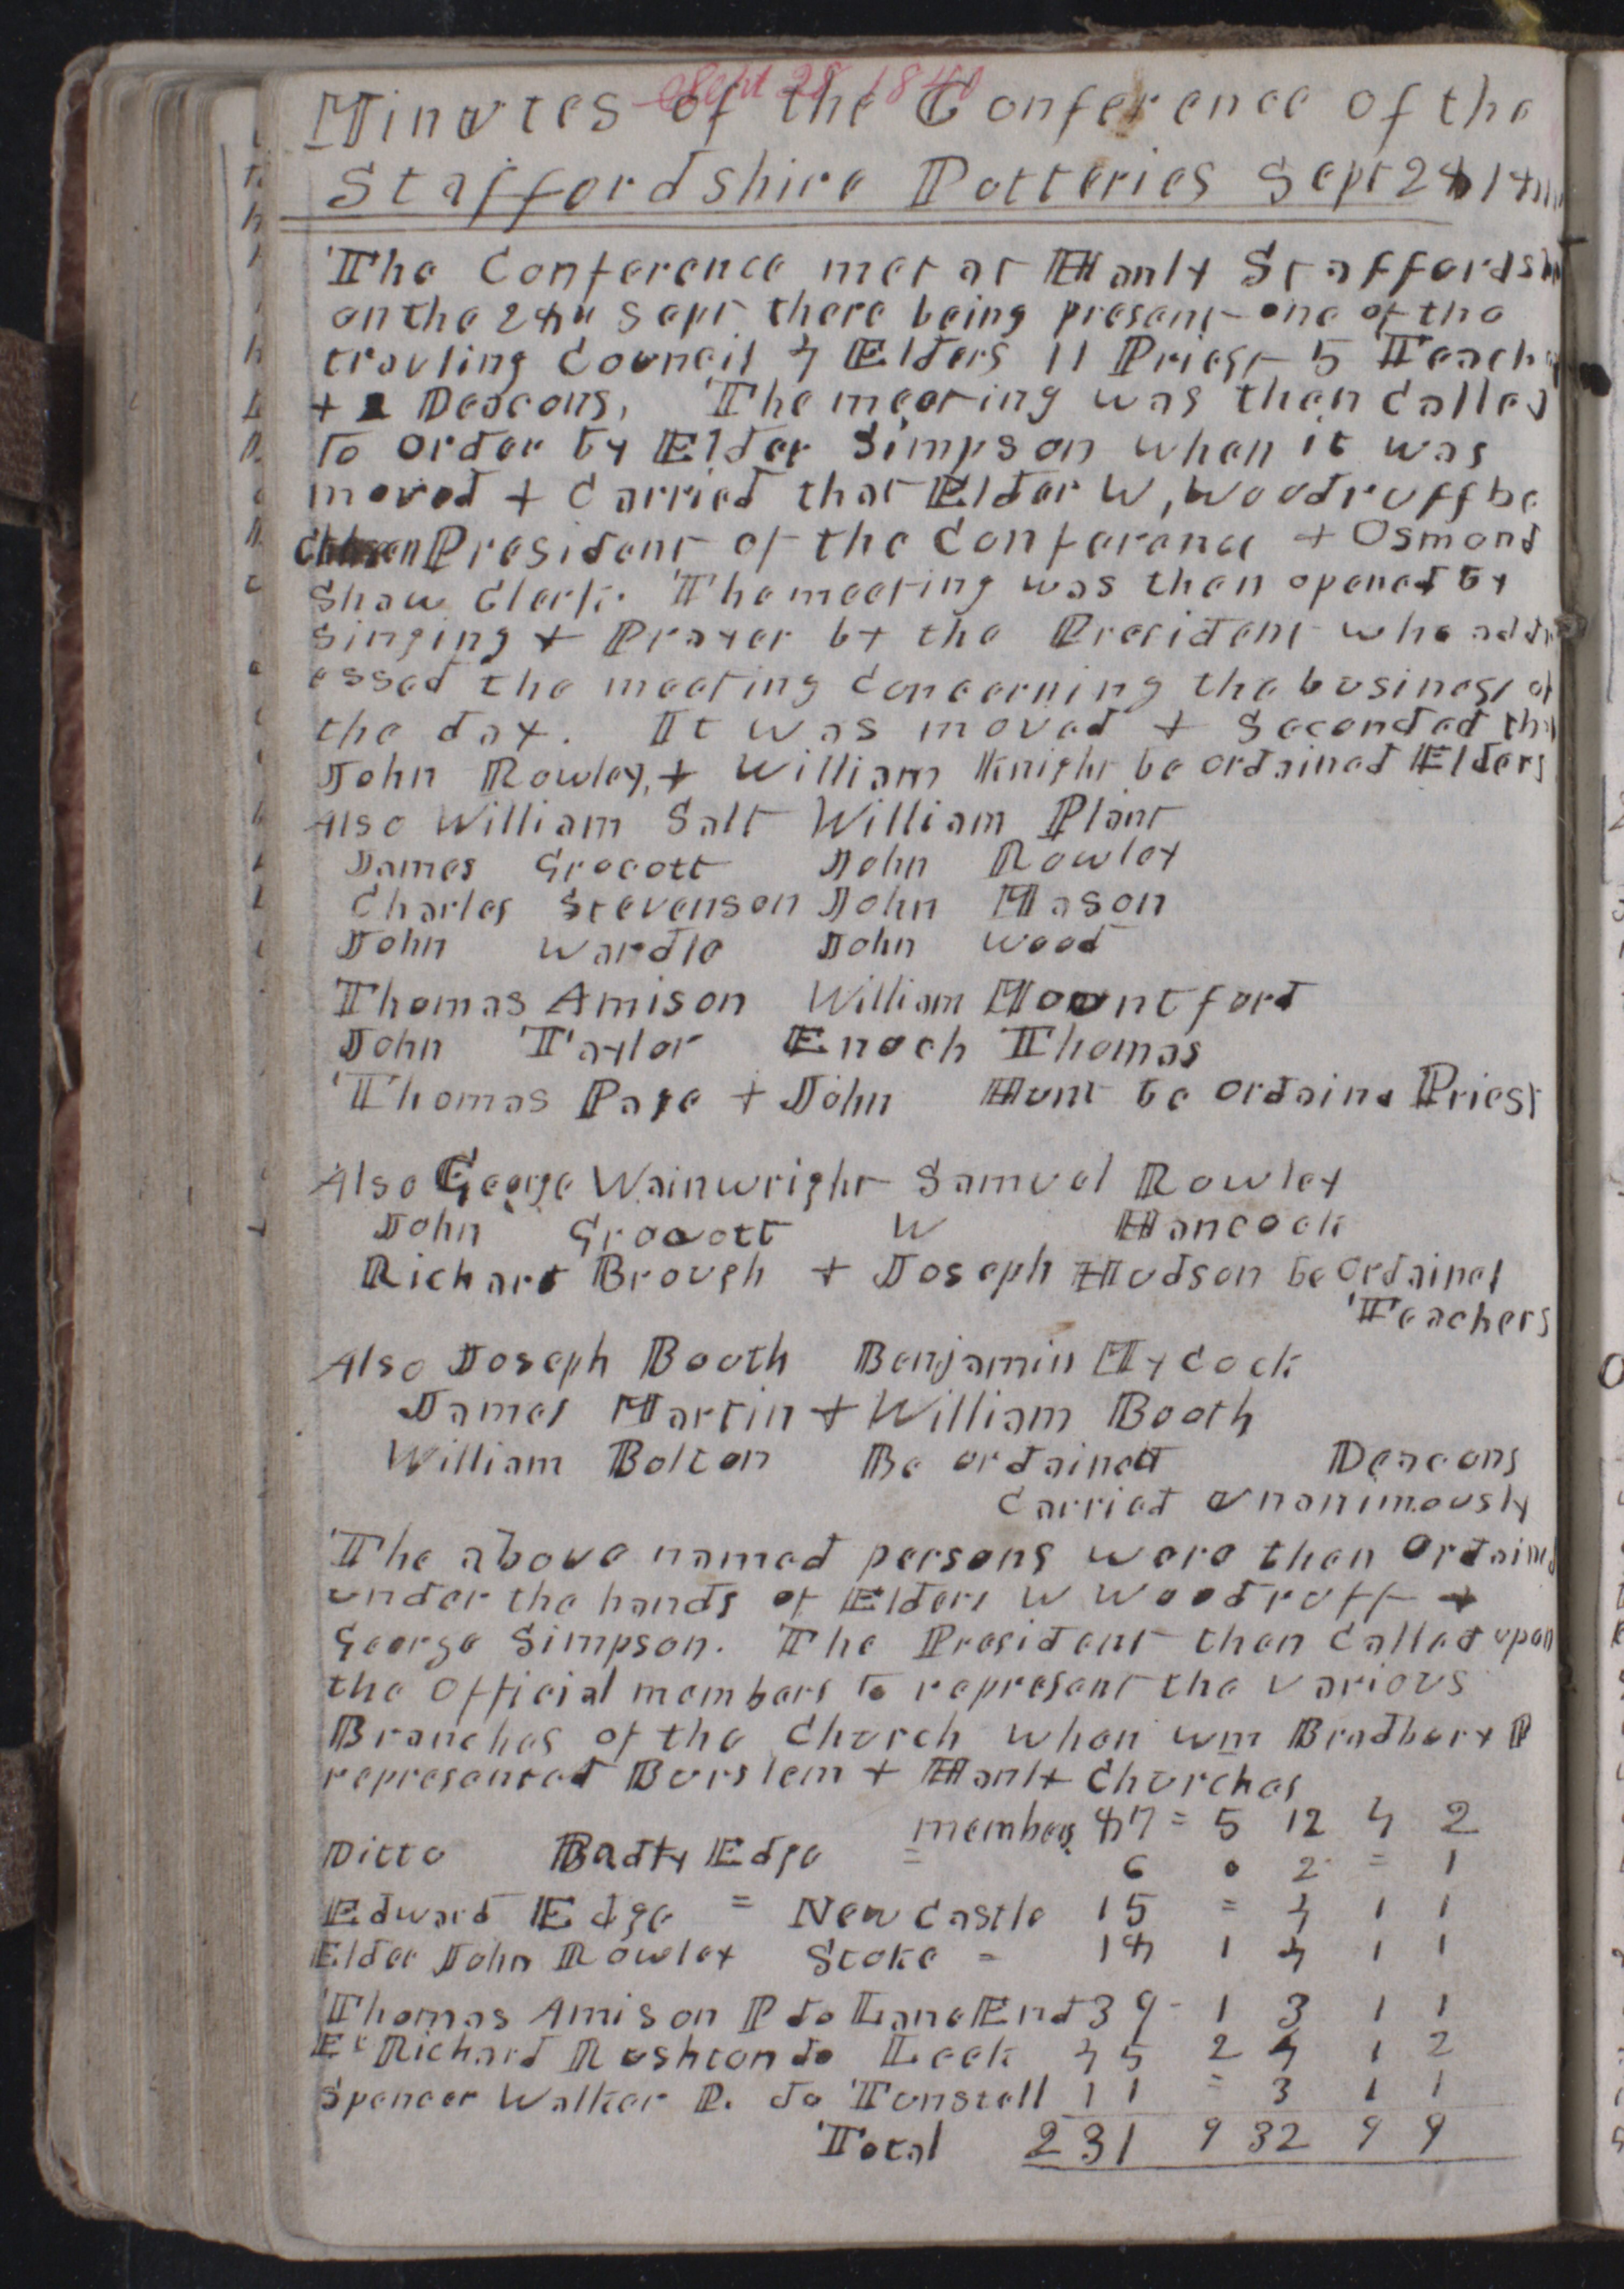 Sept 28 1840
Minutes of the Conference of the
Staffordshire Potteries Sept 28
The Conference met at Hanly Staffords
on the 28th Sept there being present one of the
travling Council 4 Elders 11 Priest 5 Teach
+ 2 Deacons, The meeting was then Called
to order by Elder Simpson when it was
moved + Carried that Elder W, Woodruff be
Chosen President of the Conference + Osmond
Shaw Clerk. The meeting was then opened by
Singing + Prayer by the President who addr
essed the meeting Concerning the business of
the day. It was moved + Seconded th
John Rowley, + William Knight be ordained Elders
Also William Salt William Plant
James Grocott John Rowley
Charles Stevenson John Mason
John Wardle John Wood
Thomas Amison William Mountford
John Taylor Enoch Thomas
Thomas Page + John Hunt be ordaind Priest
Also George Wainwright Samuel Rowley
John Grocott W Hancock
Richard Brough + Joseph Hudson be ordained
Teachers
Also Joseph Booth Benjamin Mycock
James Martin + William Booth
William Bolton Be ordained Deacons
Carried unanimously
The above named persons were then ordained
under the hands of Elders W Woodruff +
George Simpson. The President then Called upon
the official members to represent the various
Branches of the Church when Wm Bradbury P
represented Burslem + Hanly Churches
members 87 = 5 12 4 2
Ditto Badty Edge = 6 0 2 = 1
Edward Edge = Newcastle 15 = 4 1 1
Elder John Rowley Stoke = 18 1 4 1 1
Thomas Amison P do Lane End 39 - 1 3 1 1
Er Richard Rushton do Leek 45 2 4 1 2
Spencer Walker P. do Tunstell 11 = 3 1 1
Total 231 9 32 9 9